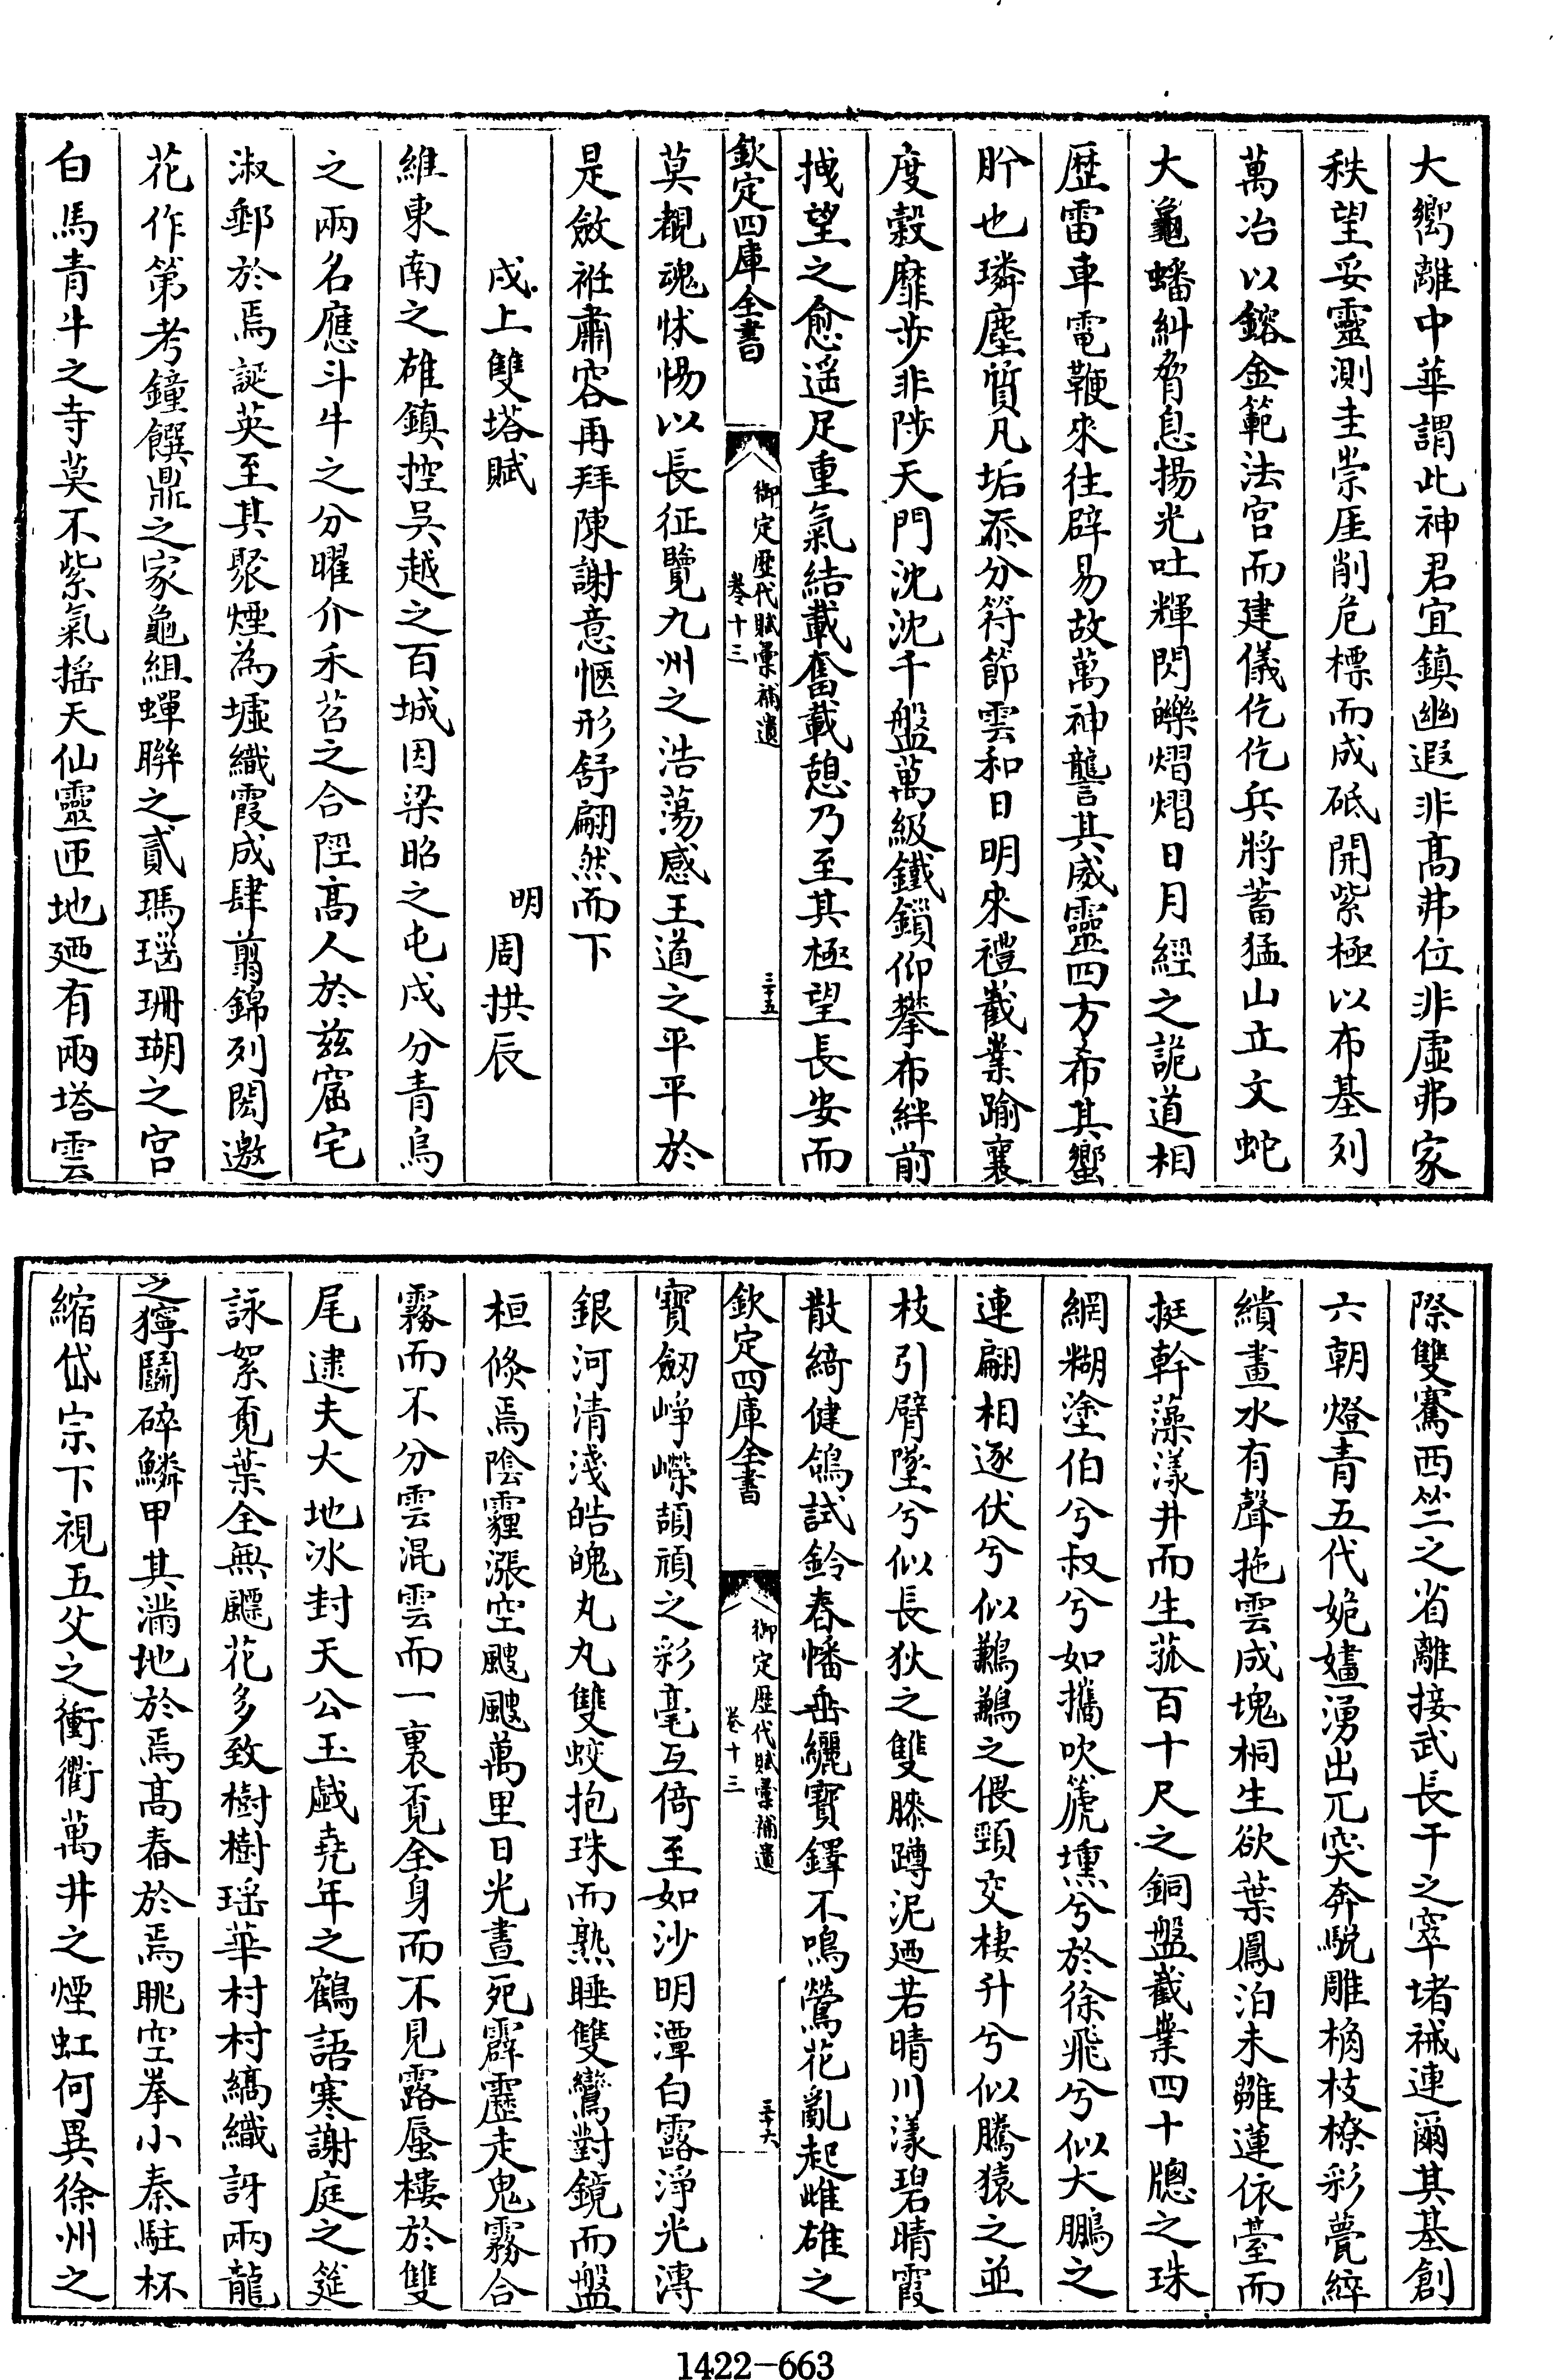 大嚮離中華謂此神君宜鎮幽遐非髙弗位非虛弗家
秩望妥靈測圭崇厓削危標而成砥開紫極以布基列
萬冶以鎔金範法宫而建儀仡仡兵將蓄猛山立文蛇
大龜蟠糾脅息揚光吐輝閃皪熠熠日月經之詭道相
歴雷車電鞭來往辟易故萬神讋其威靈四方希其蠁
肸也璘塵質凡垢忝分符節雲和日明來禮嶻嶪踰襄
度穀靡步非陟天門沈沈千盤萬級鐵鎖仰攀布絆前
拽望之愈遥足重氣結載奮載憩乃至其極望長安而
欽定四庫全書
御定歴代賦彙補遺
卷十三
三十五
莫覩魂怵惕以長征覽九州之浩蕩感王道之平平於
是斂袵肅容再拜陳謝意愜形舒翩然而下
戍上雙塔賦
明 周拱辰
維東南之雄鎮控吳越之百城因梁昭之屯戍分青烏
之兩名應斗牛之分曜介禾苕之合陘髙人於兹窟宅
淑郵於焉誕英至其聚煙為墟織霞成肆翦錦列閎邀
花作第考鐘饌鼎之家龜組蟬聨之貳瑪瑙珊瑚之宫
白馬青牛之寺莫不紫氣揺天仙靈匝地廼有兩塔雲
際雙騫西竺之省離接武長干之窣堵祴連爾其基創
六朝燈青五代姽嫿湧出兀突奔駾雕桷枝橑彩甍綷
繢畫水有聲拖雲成塊桐生欲葉鳳泊未雛蓮依臺而
挺幹藻漾井而生菰百十尺之銅盤嶻嶪四十牕之珠
網糊塗伯兮叔兮如攜吹篪壎兮於徐飛兮似大鵬之
連翩相逐伏兮似鶼鶼之偎頸交棲升兮似騰猿之並
枝引臂墜兮似長狄之雙膝蹲泥廼若晴川漾碧晴霞
散綺健鴿試鈴春幡垂纚寶鐸不鳴鶯花亂起雌雄之
欽定四庫全書
御定歴代賦彙補遺
卷十三
三十六
寶劒崢嶸頡頏之彩毫互倚至如沙明潭白露淨光漙
銀河清淺皓魄丸丸雙蛟抱珠而熟睡雙鸞對鏡而盤
桓倐焉陰霾漲空颼颼萬里日光晝死霹靂走鬼霧合
霧而不分雲混雲而一裹覔全身而不見露蜃樓於雙
尾逮夫大地冰封天公玉戯堯年之鶴語寒謝庭之筵
詠絮覔葉全無飄花多致樹樹瑶華村村縞織訝兩龍
之獰鬭碎鱗甲其滿地於焉髙春於焉眺空拳小秦駐杯
縮岱宗下視五父之衝衢萬井之煙虹何異徐州之
1422-663